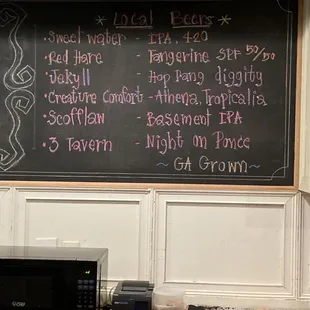 * Local Beers *
• Sweet water - IPA, 420
• Red Hare - Tangerine SPF 50/50
• Jekyll - Hop Dang diggity
• Creature Comfort - Athena, Tropicalia
• Scofflaw - Basement IPA
• 3 Tavern - Night on Ponce
~ GA Grown ~